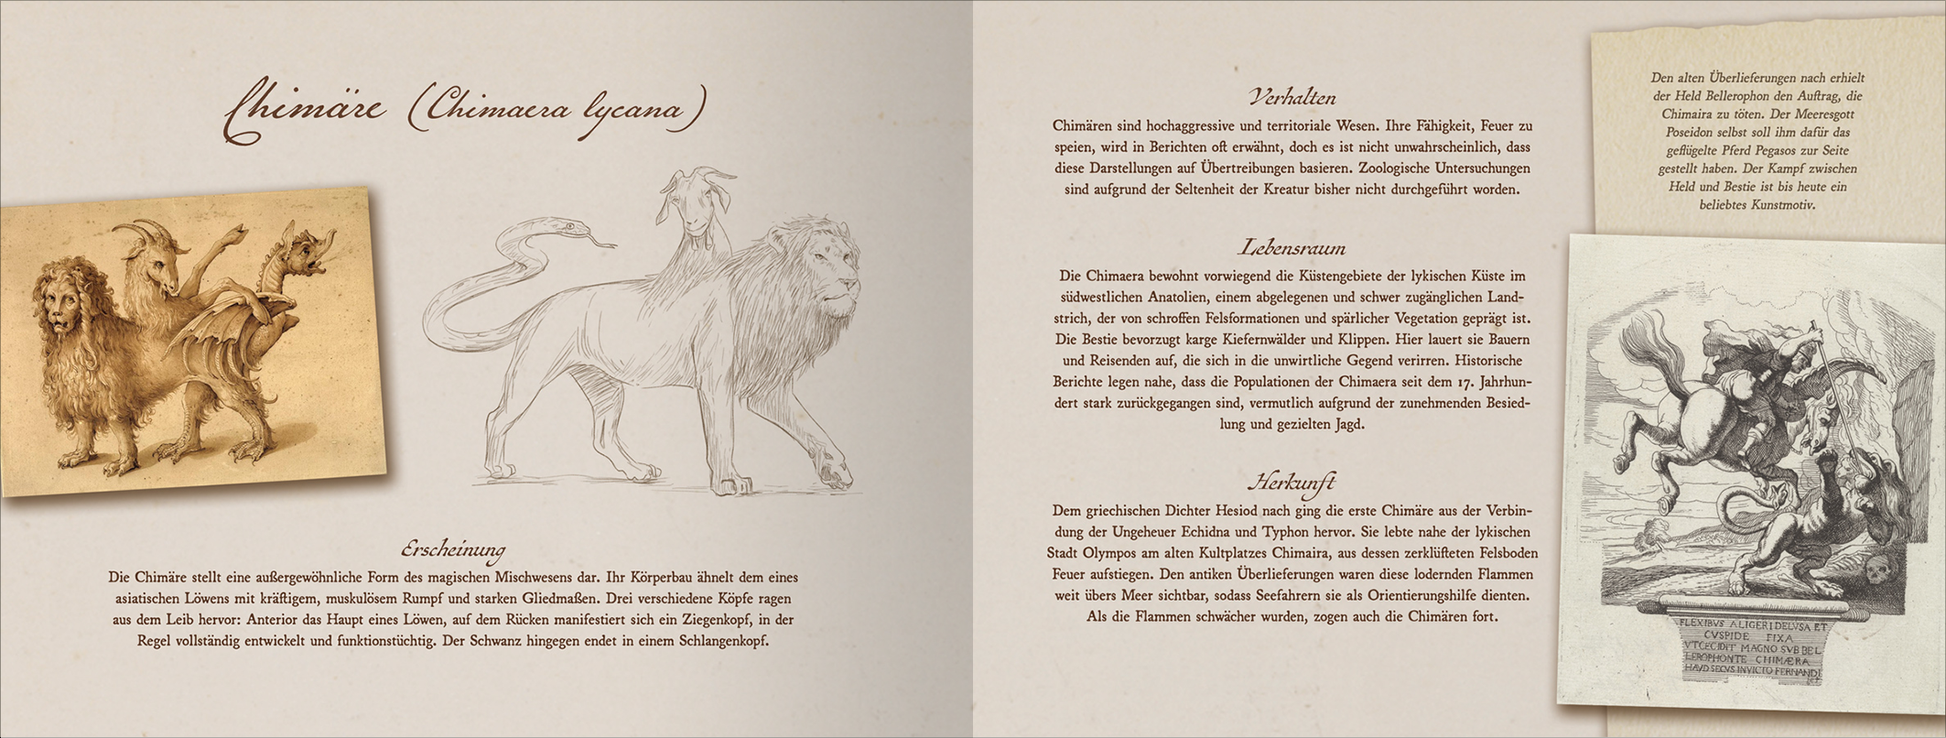 Chimäre (Chimaera lycana)
Erscheinung
Die Chimäre stellt eine außergewöhnliche Form des magischen Mischwesens dar. Ihr Körperbau ähnelt dem eines
asiatischen Löwens mit kräftigem, muskulösem Rumpf und starken Gliedmaßen. Drei verschiedene Köpfe ragen
aus dem Leib hervor: Anterior das Haupt eines Löwen, auf dem Rücken manifestiert sich ein Ziegenkopf, in der
Regel vollständig entwickelt und funktionstüchtig. Der Schwanz hingegen endet in einem Schlangenkopf.
Verhalten
Chimären sind hochaggressive und territoriale Wesen. Ihre Fähigkeit, Feuer zu
speien, wird in Berichten oft erwähnt, doch es ist nicht unwahrscheinlich, dass
diese Darstellungen auf Übertreibungen basieren. Zoologische Untersuchungen
sind aufgrund der Seltenheit der Kreatur bisher nicht durchgeführt worden.
Lebensraum
Die Chimaera bewohnt vorwiegend die Küstengebiete der lykischen Küste im
südwestlichen Anatolien, einem abgelegenen und schwer zugänglichen Land-
strich, der von schroffen Felsformationen und spärlicher Vegetation geprägt ist.
Die Bestie bevorzugt karge Kiefernwälder und Klippen. Hier lauert sie Bauern
und Reisenden auf, die sich in die unwirtliche Gegend verirren. Historische
Berichte legen nahe, dass die Populationen der Chimaera seit dem 17. Jahrhun-
dert stark zurückgegangen sind, vermutlich aufgrund der zunehmenden Besied-
lung und gezielten Jagd.
Herkunft
Dem griechischen Dichter Hesiod nach ging die erste Chimäre aus der Verbin-
dung der Ungeheuer Echidna und Typhon hervor. Sie lebte nahe der lykischen
Stadt Olympos am alten Kultplatzes Chimaira, aus dessen zerklüfteten Felsboden
Feuer aufstiegen. Den antiken Überlieferungen waren diese lodernden Flammen
weit übers Meer sichtbar, sodass Seefahrern sie als Orientierungshilfe dienten.
Als die Flammen schwächer wurden, zogen auch die Chimären fort.
Den alten Überlieferungen nach erhielt
der Held Bellerophon den Auftrag, die
Chimaira zu töten. Der Meeresgott
Poseidon selbst soll ihm dafür das
geflügelte Pferd Pegasos zur Seite
gestellt haben. Der Kampf zwischen
Held und Bestie ist bis heute ein
beliebtes Kunstmotiv.
FLEXIBVS ALIGERI DELVSA ET
CVSPIDE FIXA
VT CECIDIT MAGNO SVB BEL
LEROPHONTE CHIMÆRA
HAVD SECVS INVICTO FERNANDI